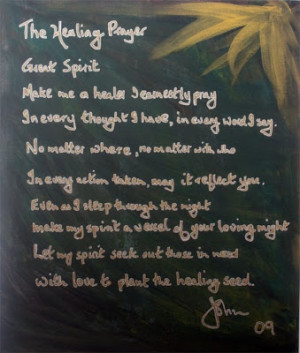 The Healing Prayer
Great Spirit
Make me a healer I earnestly pray
In every thought I have, in every word I say.
No matter where, no matter with who
In every action taken, may it reflect you.
Even as I sleep through the night
make my spirit a vessel of your loving might
Let my spirit seek out those in need
with love to plant the healing seed
John
09